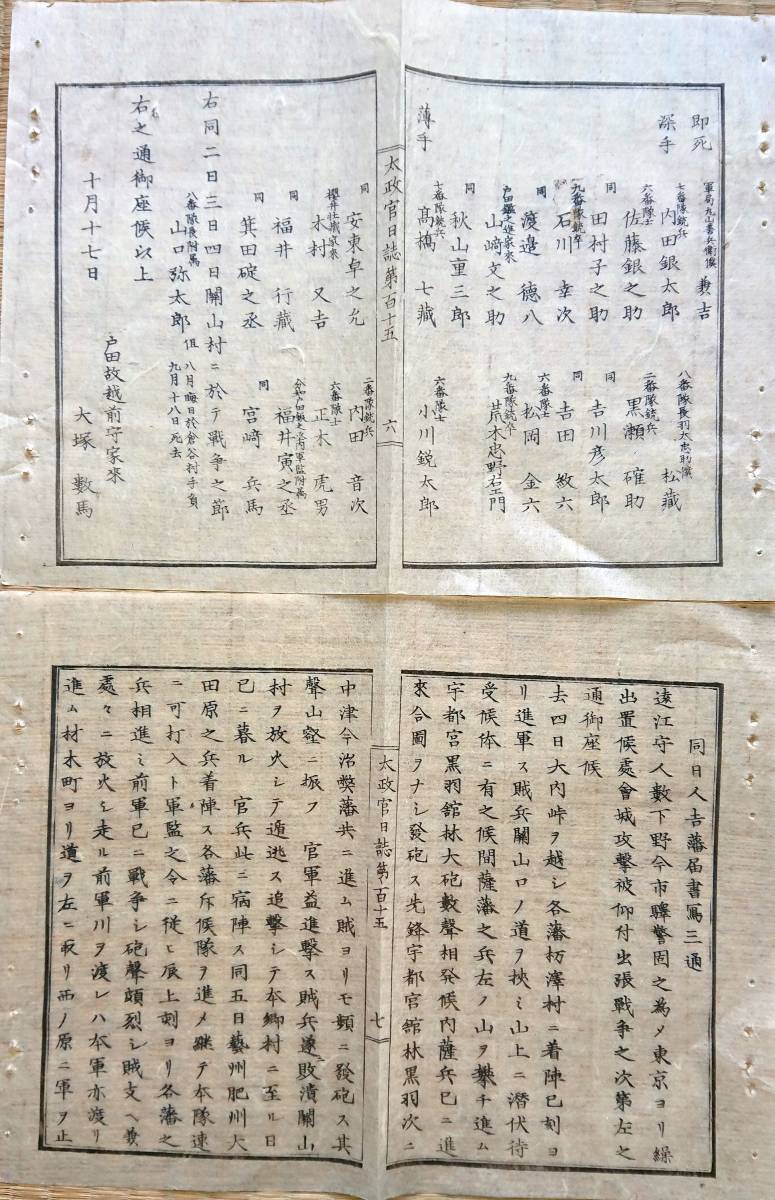 即死
軍局丸山善兵衞僕 兼吉
深手
七番隊銃兵 内田銀太郎
八番隊長羽太忠助僕 松藏
六番隊士 佐藤銀之助
二番隊銃兵 黒瀬確助
同 田村子之助
同 吉川彦太郎
九番隊銃卒 石川幸次
同 吉田紋六
同 渡邉徳八
六番隊士 松岡金六
戸田鎮之進家來 山﨑文之助
九番隊銃卒 荒木忠野右エ門
同 秋山重三郎
薄手
七番隊銃兵 髙橋七藏
六番隊士 小川鋭太郎
太政官日誌第百十五 六
同 安東卓之允
二番隊銃兵 内田音次
櫻井壮藏家來 木村又吉
六番隊士 正木虎男
同 福井行藏
軍監附属 福井寅之丞
同 箕田碇之丞
同 宮﨑兵馬
右同二日三日四日關山村ニ於テ戦争之節
八番隊長附属 山口弥太郎
但 八月晦日於倉谷村手負
九月十八日死去
右之通御座候以上
十月十七日
戸田故越前守家來
大塚數馬
同日人吉藩届書寫三通
遠江守人數下野今市驛警固之為メ東京ヨリ繰
出置候處會城攻撃被仰付出張戦争之次第左之
通御座候
去四日大内峠ヲ越シ各藩栃澤村ニ着陣已刻ヨ
リ進軍ス賊兵關山口ノ道ヲ挾ミ山上ニ潜伏待
受候体ニ有之候間薩藩之兵左ノ山ヲ攀チ進ム
宇都宮黒羽舘林大砲數聲相発候内薩兵已ニ進
來合圖ヲナシ發砲ス先鋒宇都宮舘林黒羽次ニ
太政官日誌第百十五 七
中津今治弊藩共ニ進ム賊ヨリモ頻ニ發砲ス其
聲山壑ニ振フ 官軍益進撃ス賊兵遂ニ敗潰關山
村ヲ放火シテ遁逃ス追撃シテ本郷村ニ至ル日
已ニ暮ル 官兵此ニ宿陣ス同五日藝州肥州大
田原之兵着陣ス各藩斥候隊ヲ進メ継テ本隊速
ニ可打入ト軍監之令ニ従ヒ辰上刻ヨリ各藩之
兵相進ミ前軍已ニ戦争シ砲聲頗烈シ賊支ヘ兼
處々ニ放火シ走ル前軍川ヲ渡レハ本軍亦渡リ
進ム材木町ヨリ道ヲ左ニ取リ西ノ原ニ軍ヲ止